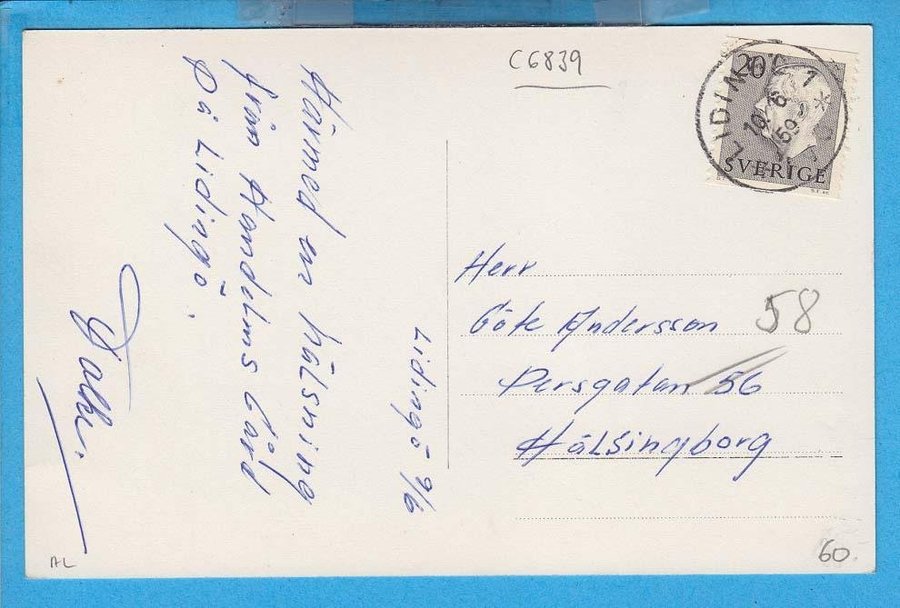 C6839
20
LIDINGÖ 1
10.6
59
SVERIGE
Lidingö 9/6
Härmed en hälsning
från Handelns Gård
på Lidingö.
Herr
Göte Andersson
58
Persgatan 56
Hälsingborg
60.
AL